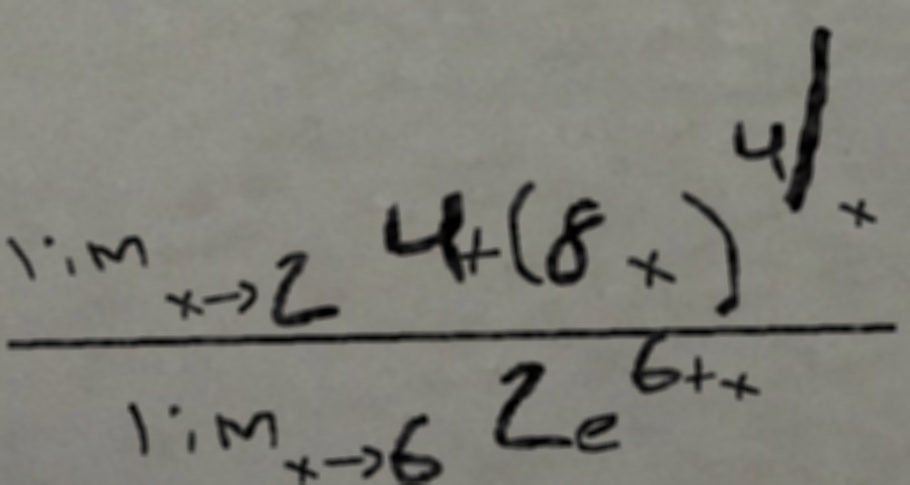 lim x→2 4+(8x)^4/x
lim x→6 2e^6+x